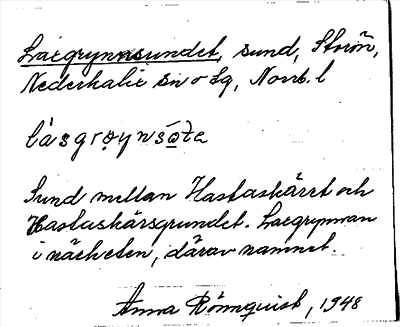 Laxgrynnsundet, sund, Storön,
Nederkalix sn o lg, Norrb. l
làsgrøynsǫ̀te
Sund mellan Hastaskärret och
Hastaskärsgrundet. Laxgrynnan
i närheten, därav namnet.
Anna Rönnquist, 1948